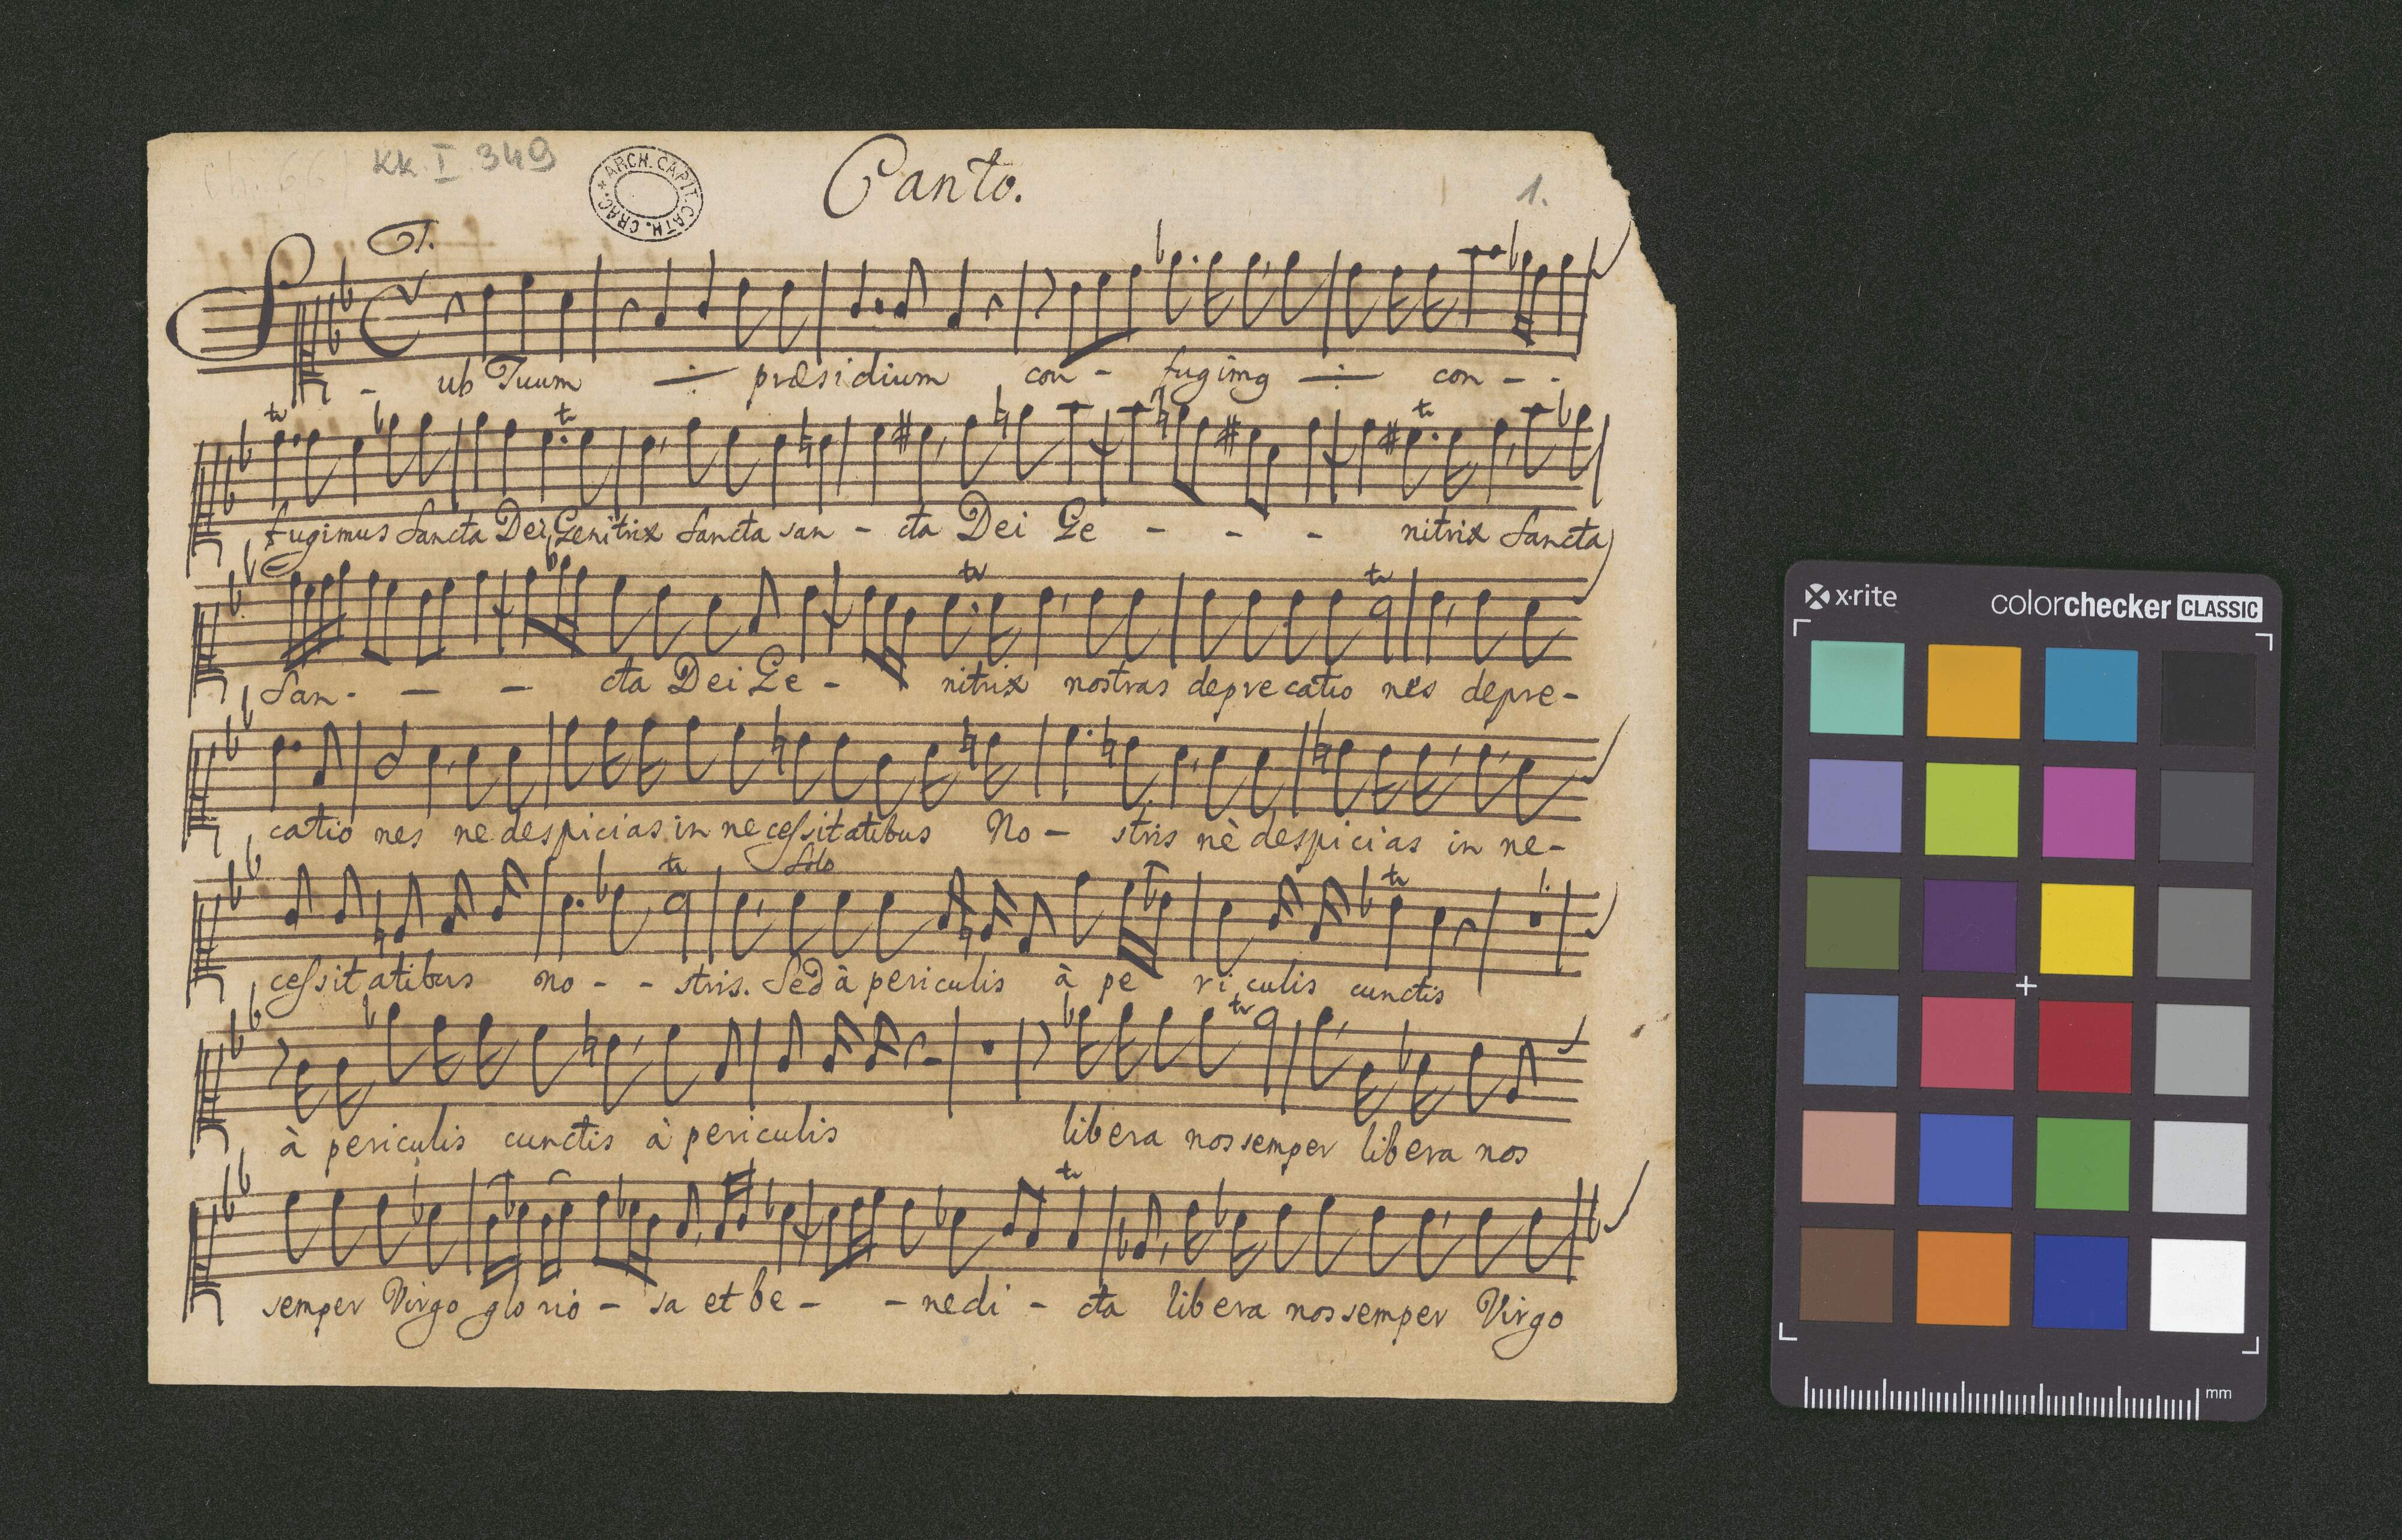 KK. I. 349
ARCH. CAPIT. CATH. CRAC.
Canto.
1.
T.
Sub Tuum præsidium con - fugimg con - -
tr tr tr
fugimus Sancta Dei Genitrix Sancta san - cta Dei Ge - - - nitrix Sancta
tr tr
San - - - cta Dei Ge - nitrix nostras deprecatio nes depre-
catio nes ne despicias in necessitatibus No - stris nè despicias in ne-
tr Solo tr
cessitatibus no - - stris. Sed à periculis à pe riculis cunctis
tr
à periculis cunctis à periculis libera nos semper libera nos
tr
semper Virgo glorio - sa et be - - nedi - cta libera nos semper Virgo
x·rite colorchecker CLASSIC
mm